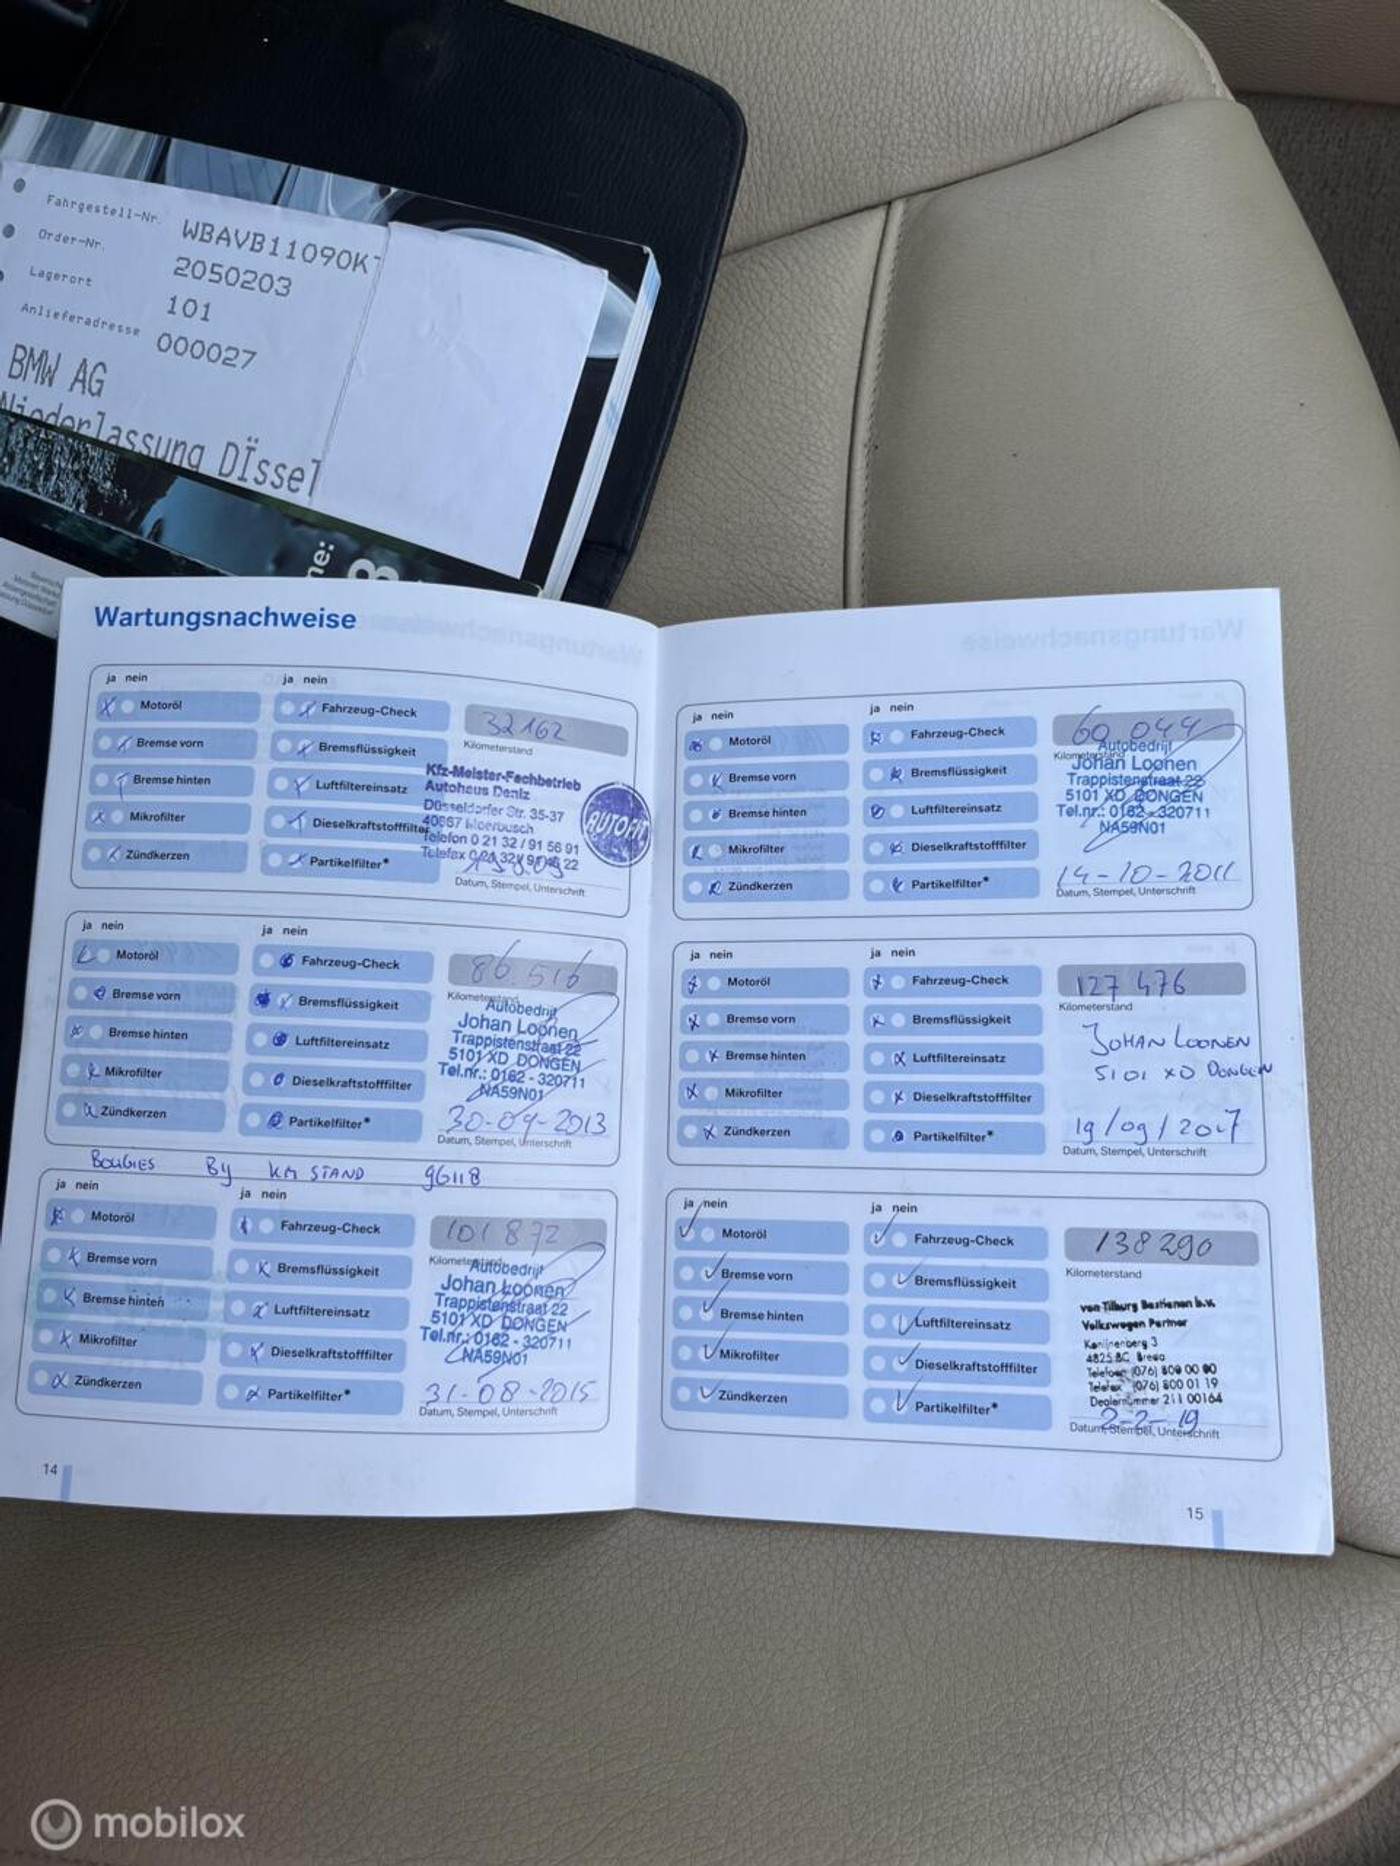 Fahrgestell-Nr. WBAVB11090K
Order-Nr. 2050203
Lagerort 101
Anlieferadresse 000027
BMW AG
Niederlassung DÏssel
ne:
Wartungsnachweise
ja nein ja nein
Motoröl Fahrzeug-Check 32162
Bremse vorn Bremsflüssigkeit Kilometerstand
Bremse hinten Luftfiltereinsatz
Mikrofilter Dieselkraftstofffilter
Zündkerzen Partikelfilter*
Kfz-Meister-Fachbetrieb
Autohaus Deniz
Düsseldorfer Str. 35-37
40667 Meerbusch
Telefon 0 21 32 / 91 56 91
AUTOFIT
Datum, Stempel, Unterschrift
ja nein ja nein
Motoröl Fahrzeug-Check 86.516
Bremse vorn Bremsflüssigkeit Kilometerstand
Bremse hinten Luftfiltereinsatz
Mikrofilter Dieselkraftstofffilter
Zündkerzen Partikelfilter*
Autobedrijf
Johan Loonen
Trappistenstraat 22
5101 XD DONGEN
Tel.nr.: 0162 - 320711
NA59N01
30-04-2013
Datum, Stempel, Unterschrift
BOUGIES BY KM STAND 96118
ja nein ja nein
Motoröl Fahrzeug-Check 101872
Bremse vorn Bremsflüssigkeit Kilometerstand
Bremse hinten Luftfiltereinsatz
Mikrofilter Dieselkraftstofffilter
Zündkerzen Partikelfilter*
Autobedrijf
Johan Loonen
Trappistenstraat 22
5101 XD DONGEN
Tel.nr.: 0162 - 320711
NA59N01
31-08-2015
Datum, Stempel, Unterschrift
14
ja nein ja nein
Motoröl Fahrzeug-Check 60.044
Bremse vorn Bremsflüssigkeit Kilometerstand
Bremse hinten Luftfiltereinsatz
Mikrofilter Dieselkraftstofffilter
Zündkerzen Partikelfilter*
Autobedrijf
Johan Loonen
Trappistenstraat 22
5101 XD DONGEN
Tel.nr.: 0162 - 320711
NA59N01
14-10-2011
Datum, Stempel, Unterschrift
ja nein ja nein
Motoröl Fahrzeug-Check 127476
Bremse vorn Bremsflüssigkeit Kilometerstand
Bremse hinten Luftfiltereinsatz
Mikrofilter Dieselkraftstofffilter
Zündkerzen Partikelfilter*
JOHAN LOONEN
5101 XD DONGEN
19/09/2017
Datum, Stempel, Unterschrift
ja nein ja nein
Motoröl Fahrzeug-Check 138290
Bremse vorn Bremsflüssigkeit Kilometerstand
Bremse hinten Luftfiltereinsatz
Mikrofilter Dieselkraftstofffilter
Zündkerzen Partikelfilter*
van Tilburg Bastianen b.v.
Volkswagen Partner
Konijnenberg 3
4825 BC Breda
Telefoon (076) 800 00 90
Telefax (076) 800 01 19
Dealernummer 211 00164
2-2-19
Datum, Stempel, Unterschrift
15
mobilox